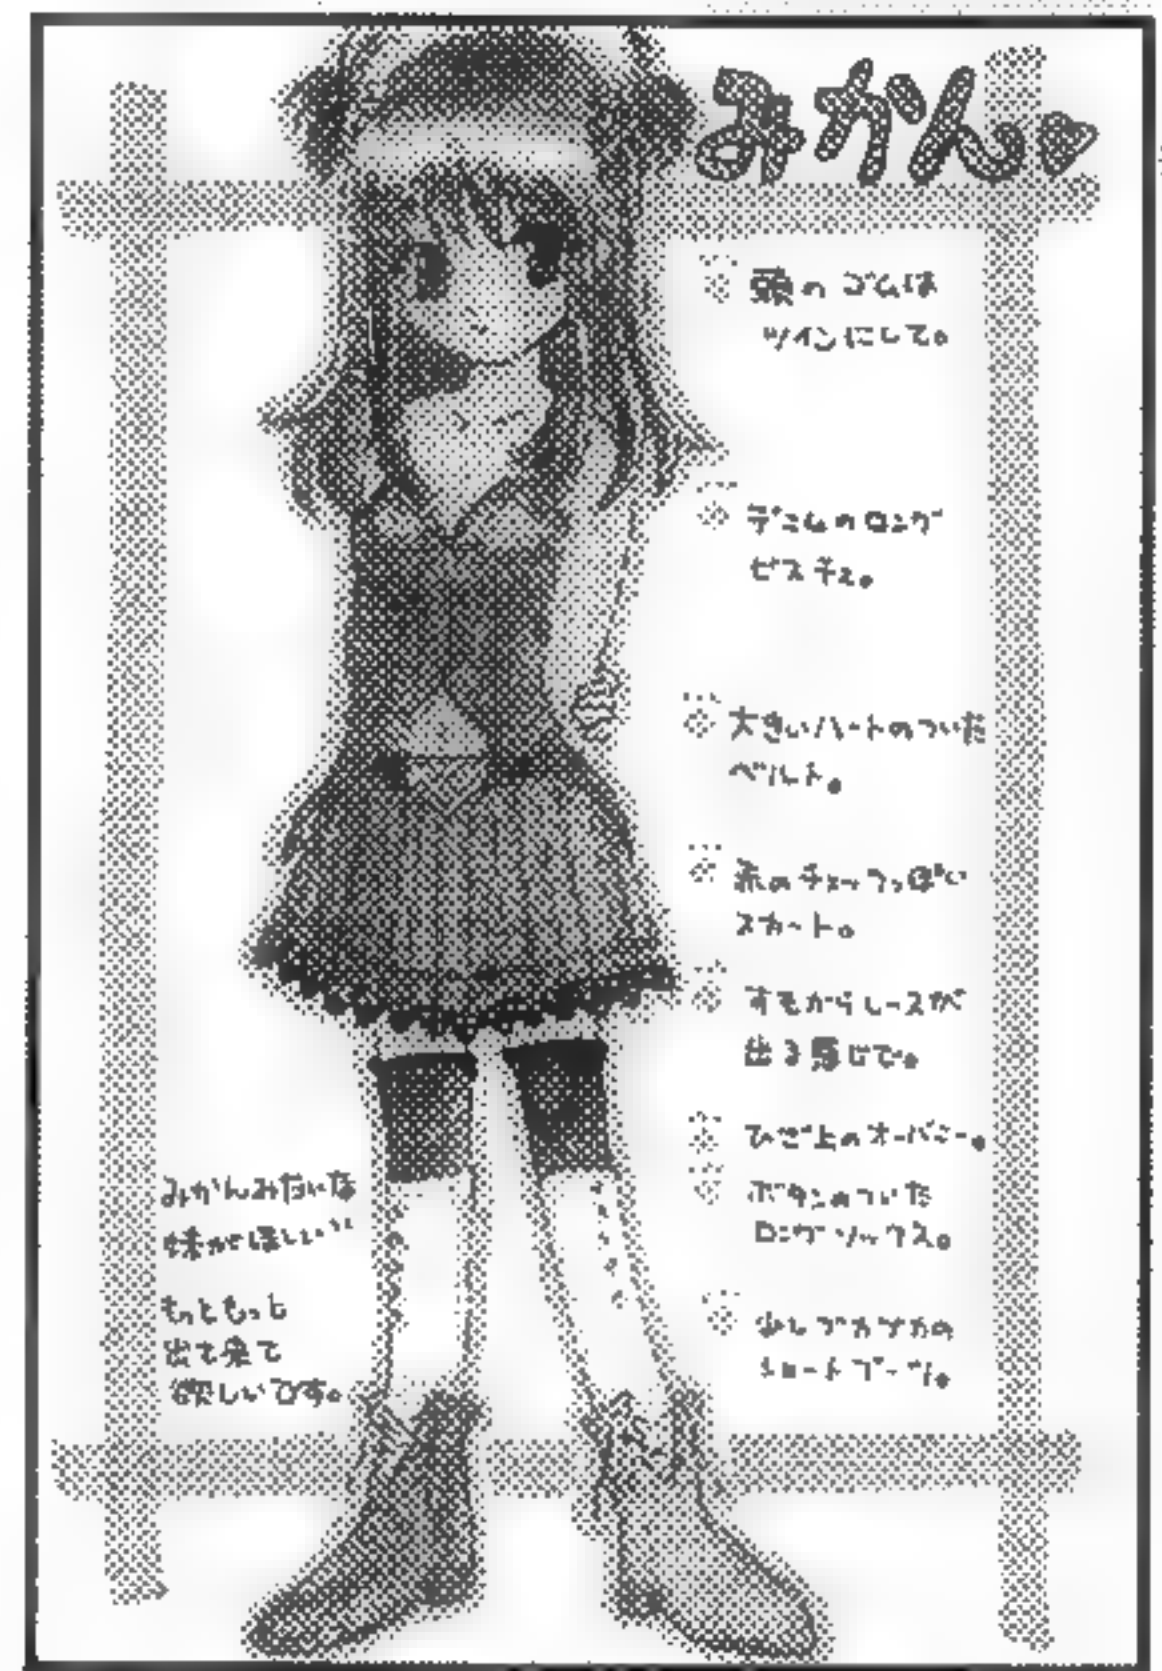 みかん♥
※ 頭のゴムは
ツインにして。
※ デニムのロング
ビスチェ。
※ 大きいハートのついた
ベルト。
※ 赤のチェックっぽい
スカート。
※ すそからレースが
出る感じで。
※ ひざ上のオーバニー。
※ ボタンのついた
ロングソックス。
※ 少しブカブカの
ショートブーツ。
みかんみたいな
妹がほしい
もっともっと
出て来て
欲しいです。